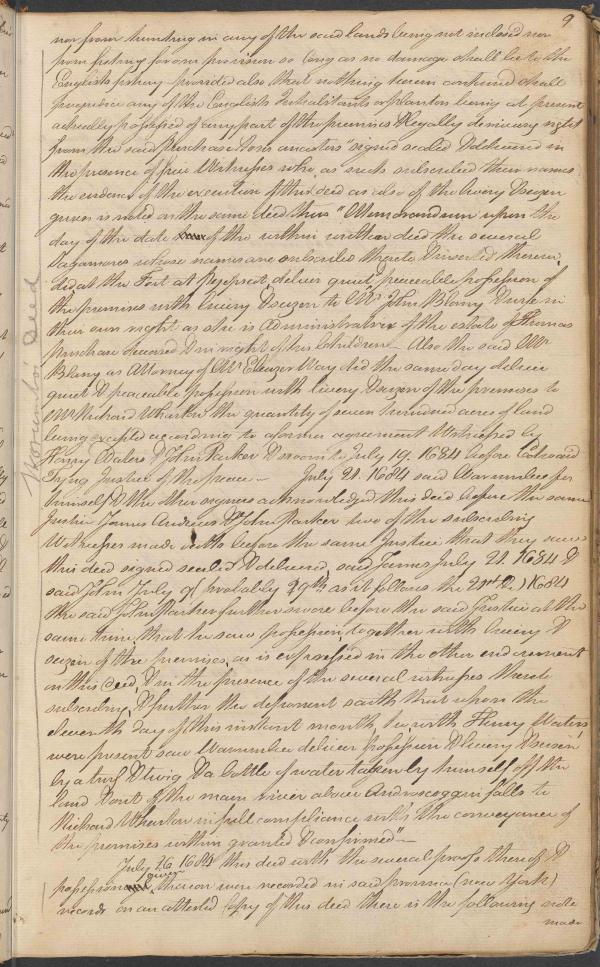 9
nor from hunting in any of the said lands being not inclosed nor
from fishing for our provision so long as no damage shall be to the
English fishery provided also that nothing herein contained shall
prejudice any of the English Inhabitants or planters being at present
actually possessed of any part of the premises & legally deriving right
from the said Purchase & or ancestors signed sealed & delivered in
the presence of five Witnesses who, as such subscribed their names
the evidence of the execution of this deed as also of the livery & seizin
given is noted on the same deed thus "Memorandum upon the
day of the date of the within written deed the several
Sagamores whose names are subscribed thereto & inserted therein
did at the Fort at Pejepscot deliver quiet & peaceable possession of
the premises with livery & seizin to Mr John Blany & wife in
their own right as she is Administratrix of the estate of Thomas
Purchase deceased & in right of his Children— Also the said Mr
Blany as Attorney of Mr Eleazer Way did the same day deliver
quiet & peaceable possession with livery & seizin of the premises to
Mr Richard Wharton the quantity of seven hundred acres of land
being excepted according to a former agreement Witnessed by
Henry Waters & John Parker & sworn to July 19. 1684 before Edward
Tyng Justice of the peace— July 21. 1684 said Warumbee for
himself & the other signers acknowledged this deed before the same
Justice James Andrews & John Parker two of the subscribing
Witnesses made oath before the same Justice that they saw
this deed signed sealed & delivered, said James July 21. 1684 &
said John July 9 (probably 29th as it follows the 21st) 1684
the said John Parker further swore before the said Justice at the
same time, that he saw possession together with livery &
seizin of the premises, as is expressed in the other endorsement
on this deed, & in the presence of the several witnesses thereto
subscribing, & further the deponent saith that upon the
eleventh day of this instant month, he with Henry Waters
were present saw Warumbee deliver possession & livery & seisin
by a turf & twig & a bottle of water taken by himself off the
land & out of the main river above Androscoggin falls to
Richard Wharton in full compliance with the conveyance of
the premises within granted & confirmed"—
July 26 1684 this deed with the several proofs thereof &
possession given thereon were recorded in said province (New York)
records on an attested Copy of this deed there is the following note
made
Worumbo Deed